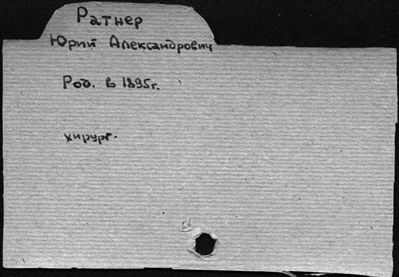 Ратнер
Юрий Александрович
Род. в 1895г.
хирург.